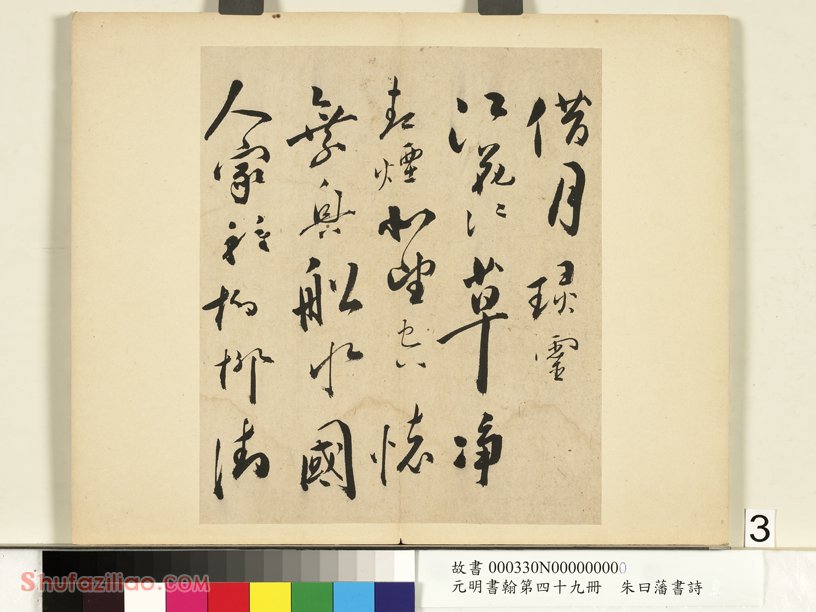 借月靈
江花江草净
煙北望空懷
無與船水國
人家種柳
3
故書 000330N000000000
元明書翰第四十九冊 朱曰藩書詩
Shufaziliao.com